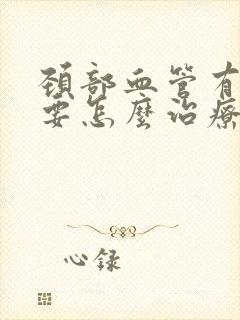 頚部血管有
要怎麼治療
心録